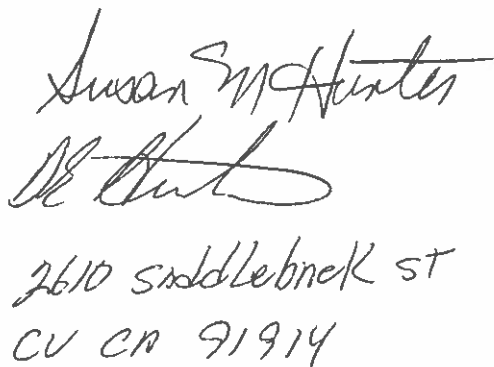 Susan M Hunter
DE Hunter
2610 SaddLebrieK ST
CV CA 91914